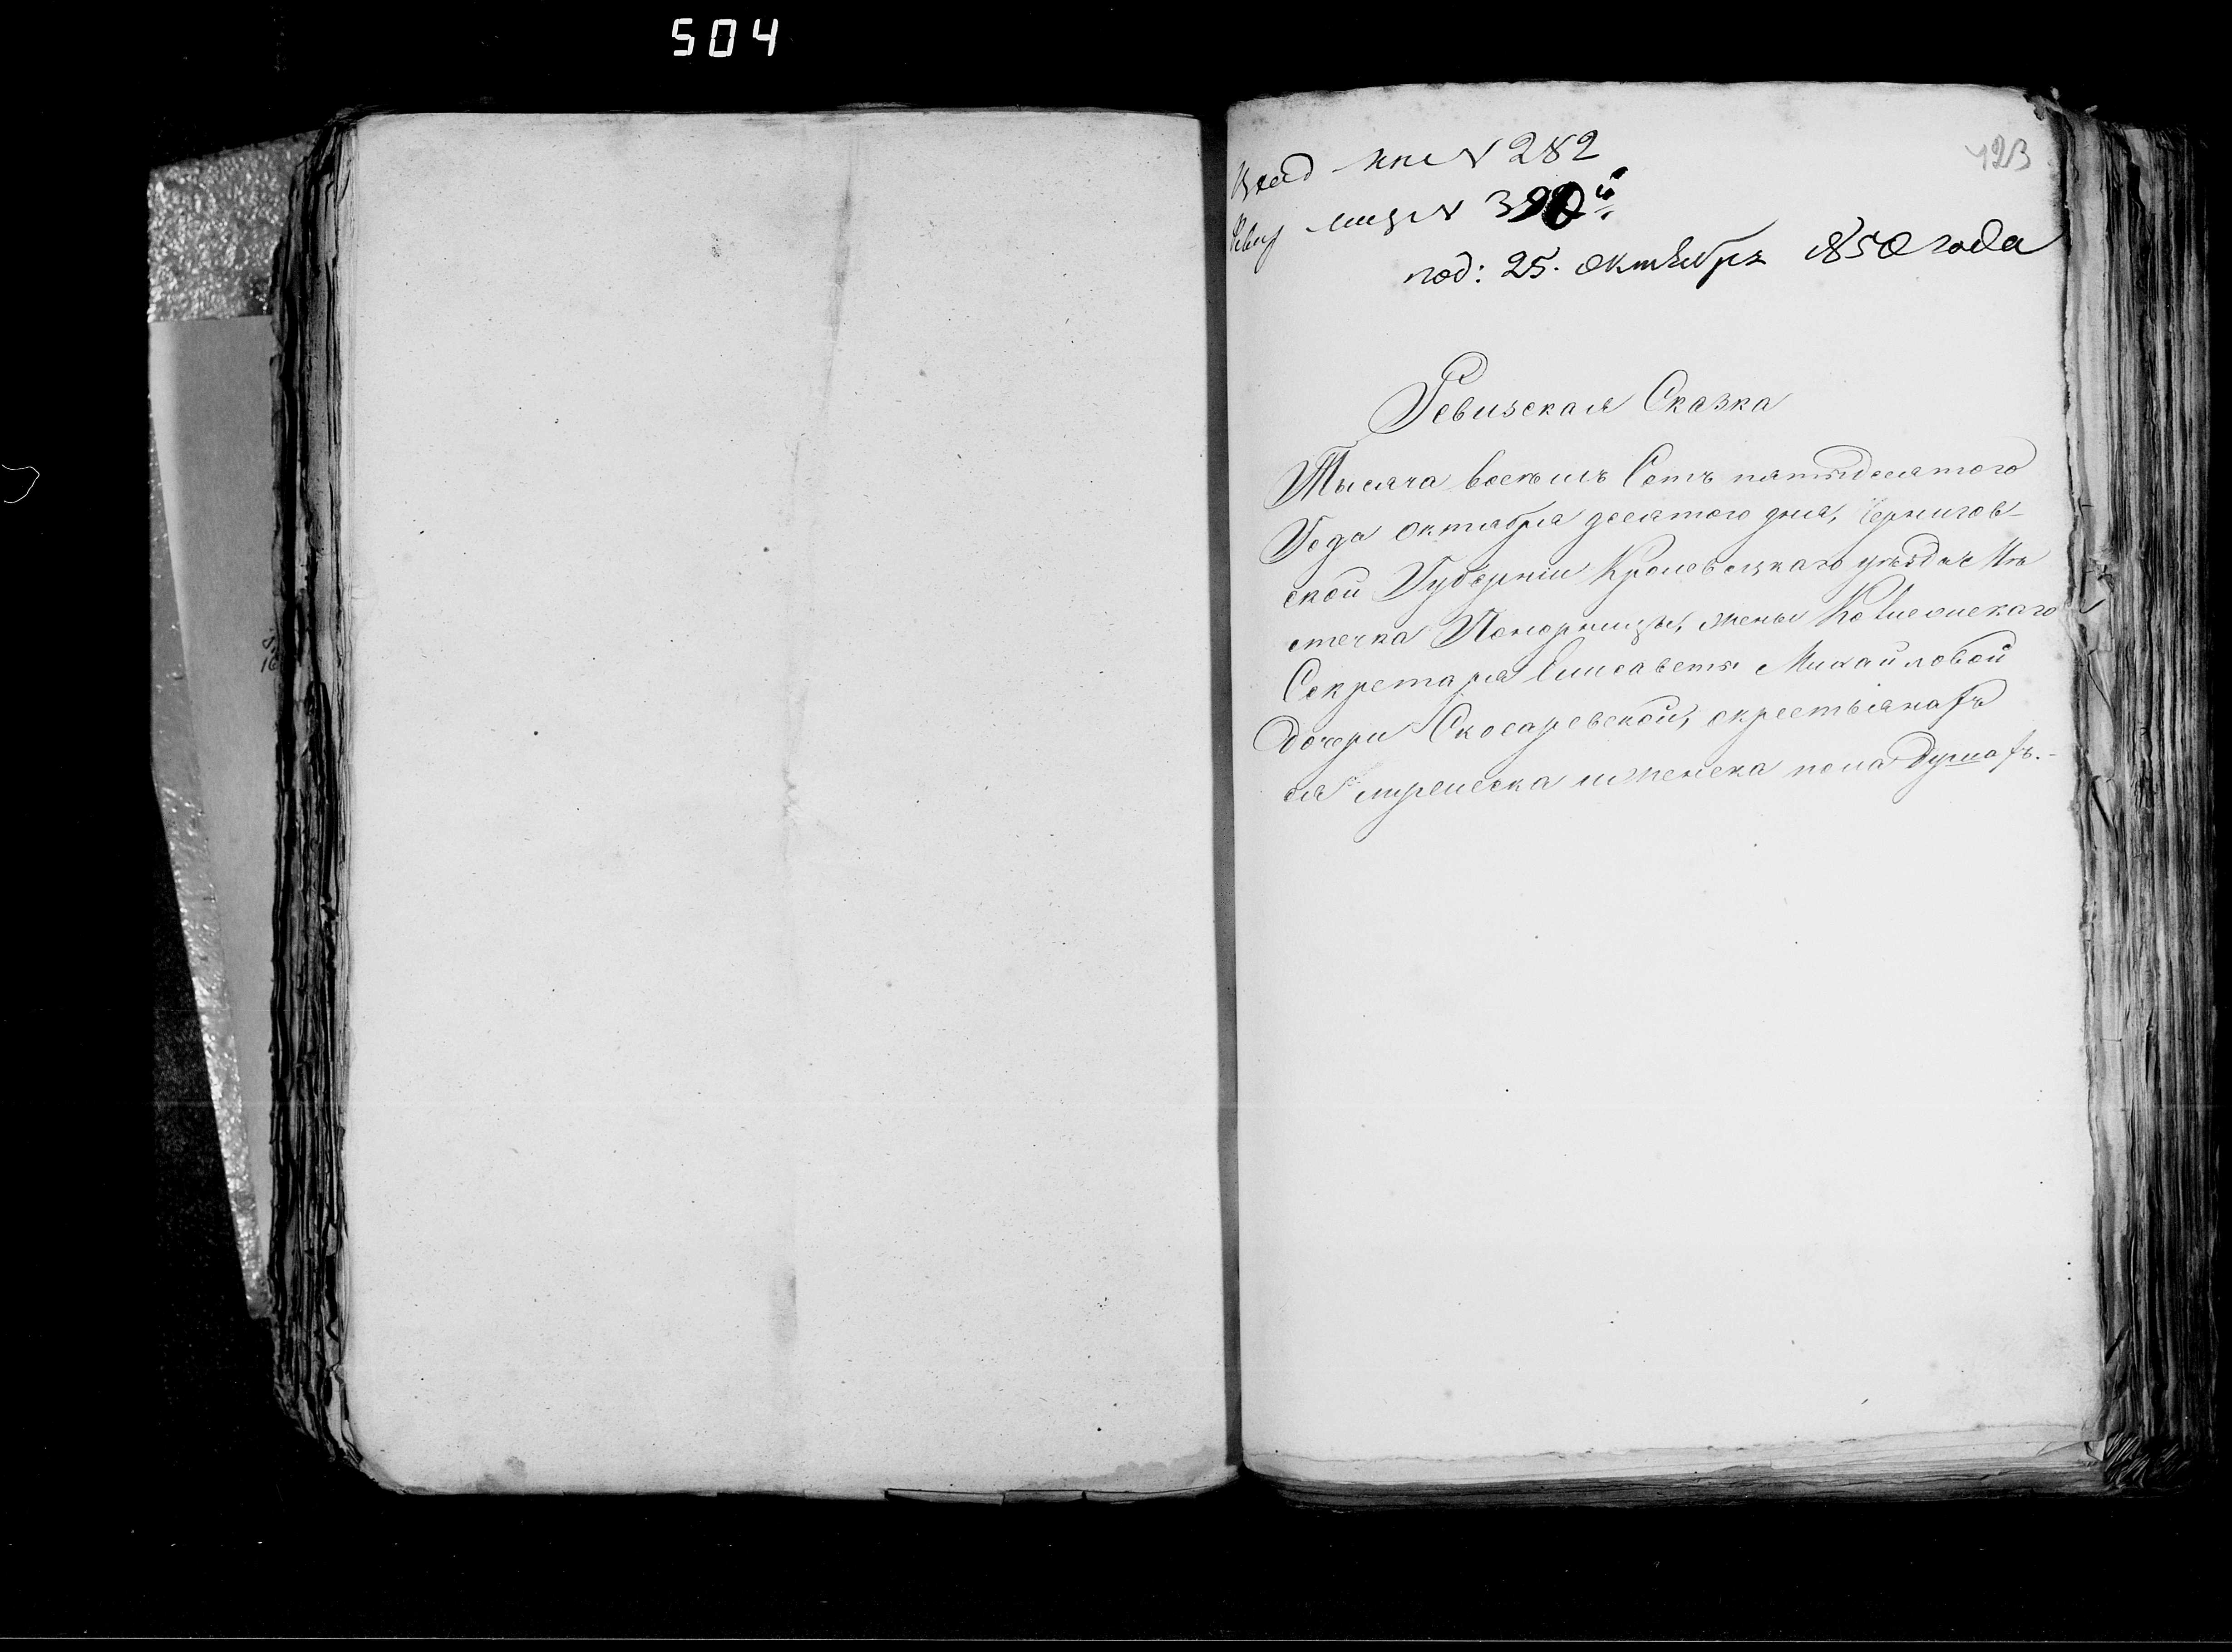 504
423
Вход кни N 282
Ревиз лица N 390й
под: 25. октября 1850 года
Ревизская Сказка
Тысяча восемь Сотъ пятьдесятого
Года октября десятого дня, Чернигов-
ской Губерніи Кролевецкаго уезда Мѣ
стечка Понорницы, жены Колежскаго
Секретаря Елисаветы Михайловой
дочери Скосаревской, окрестьянахъ
ея мужеска иженска пола Душахъ.-